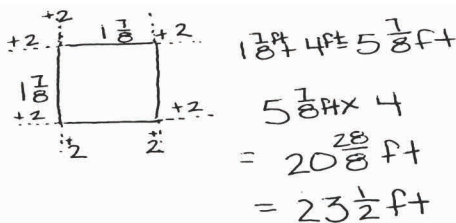 +2
+2 1 7/8 +2
1 7/8
+2 +2
+2 +2
1 7/8 ft + 4 ft = 5 7/8 ft
5 7/8 ft x 4
= 20 28/8 ft
= 23 1/2 ft